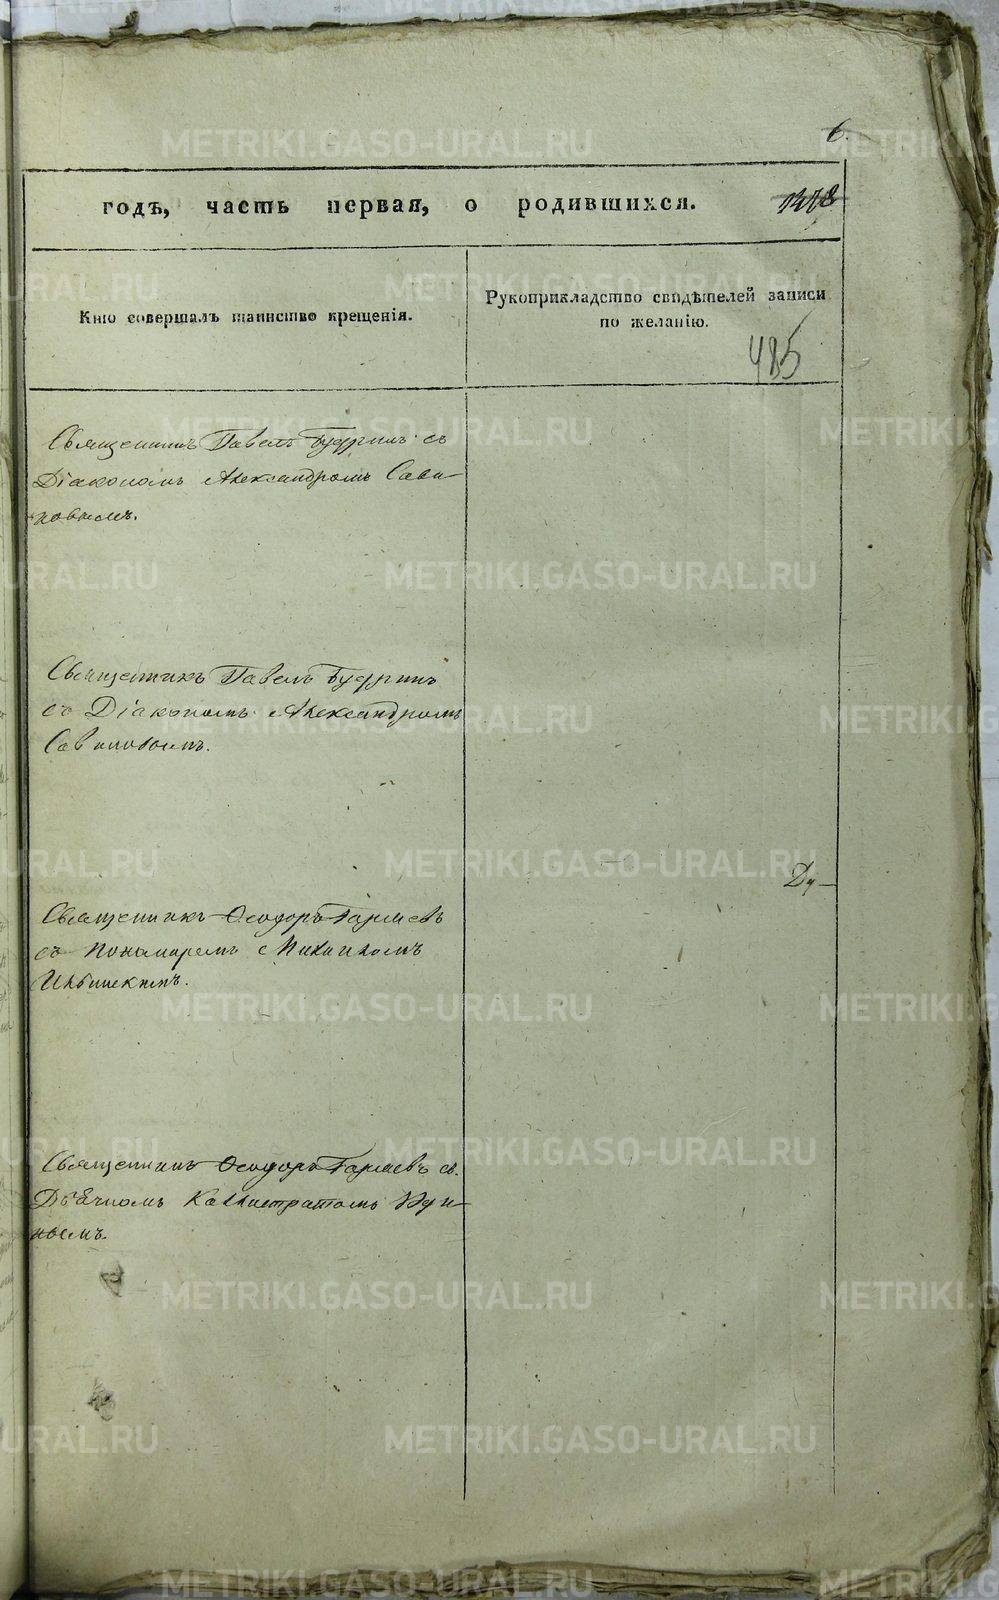 6.
годъ, часть первая, о родившихся.
Кто совершалъ таинство крещенія.
Рукоприкладство свидѣтелей записи
по желанію.
485
Священникъ Павелъ Будринъ съ
Діакономъ Александромъ Сави-
новымъ.
Священникъ Павелъ Будринъ
съ Діакономъ Александромъ
Савиновымъ.
Ду-
Священникъ Ѳеодоръ
съ Пономаремъ Михаиломъ
Ильинскимъ.
Священникъ Ѳеодоръ съ
Дьячкомъ Каллистратомъ Уди-
нымъ.
METRIKI.GASO-URAL.RU